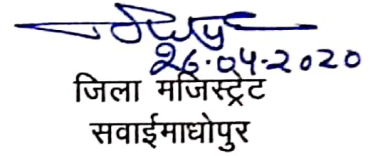 26.04.2020
जिला मजिस्ट्रेट
सवाईमाधोपुर